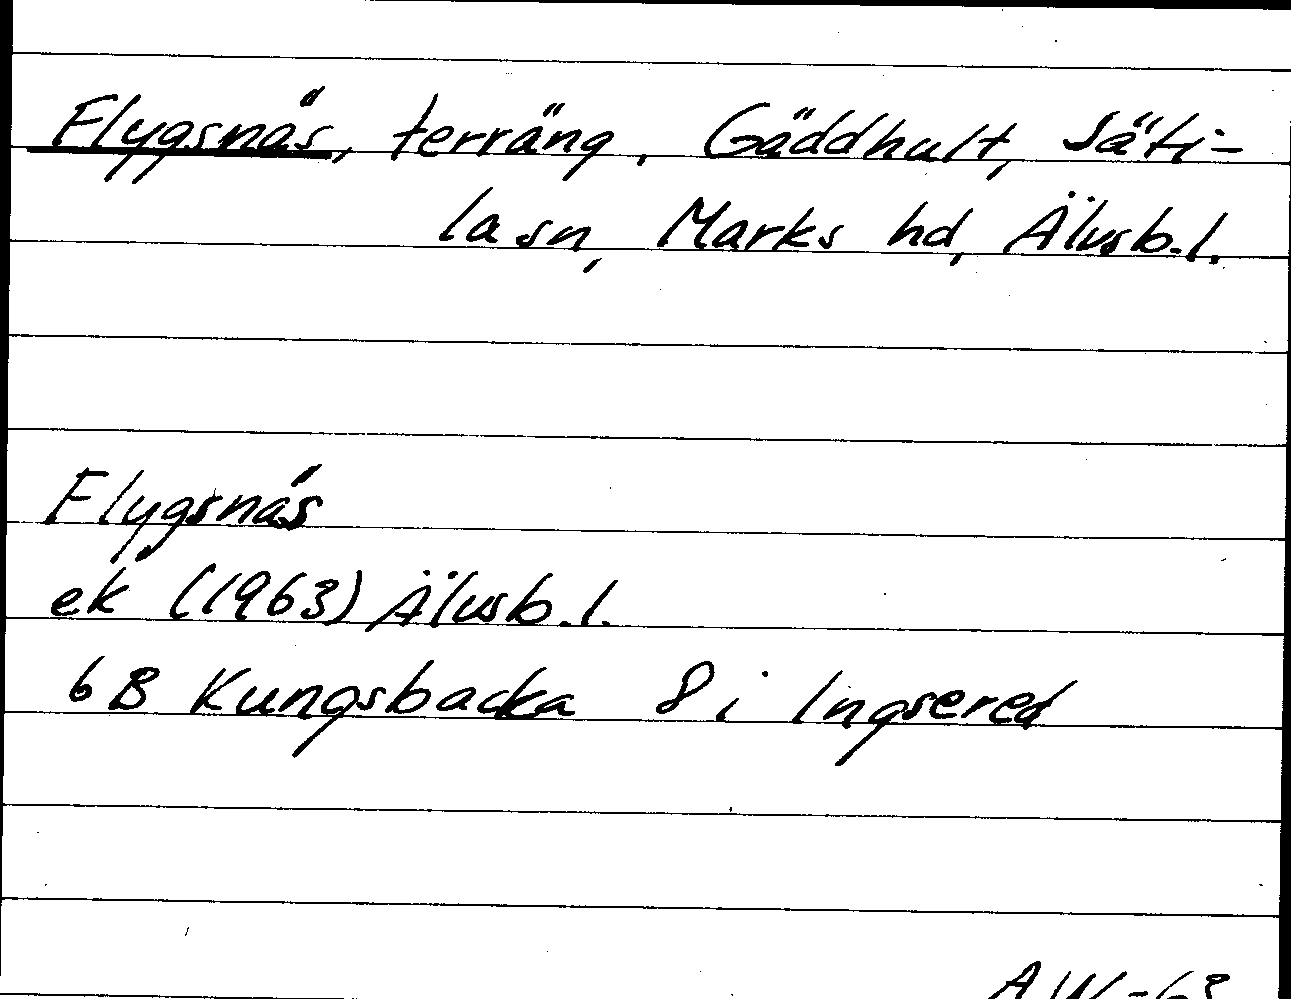 Flygsnäs, terräng, Gäddhult, Säti-
la sn, Marks hd, Älvsb.l.
Flygsnäs
ek (1963) Älvsb.l.
6B Kungsbacka 8i Ingsered
AW-63